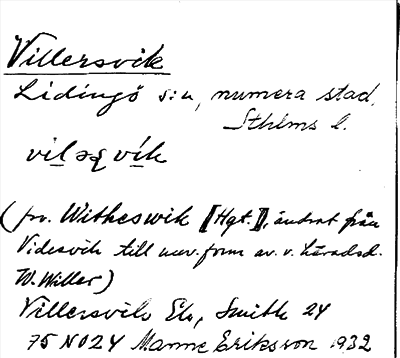 Villersvik
Lidingö s:n, numera stad,
Sthlms l.
viləʂ vík
(fr. Witheswik [Hgt.], ändrat från
Videsvik till nuv. form av v. häradsd.
W. Willer)
Villersvik Eb, Smith 24
75 NO24 Manne Eriksson 1932